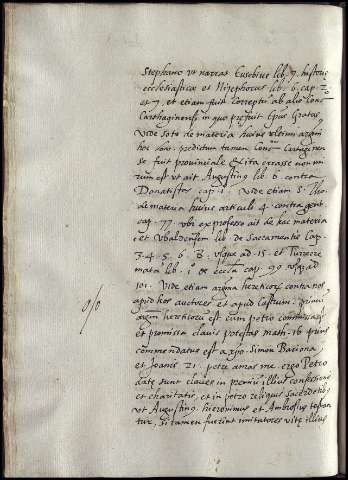 Stephano vt narrat Eusebius lib. 7. historiæ
ecclesiasticæ et Nicephorus lib. 6. cap. 7.
et 7. et etiam fuit correptus ab alio Conc.
Carthaginensi in quo præfuit Epus Gratus
Vide soto de materia huius vltimi argum.
hoc prædictum tamen Conc. Cartaginen
se fuit provinciale & ita errasse non mi
rum est vt ait Augustinus lib. 6. contra
Donatistas cap. 1. Vide etiam S. Tho.
de materia huius articuli 4. contra gent.
cap. 77. vbi ex professo ait de hac materia
et Vbaldensem lib. de Sacramentis Cap.
3. 4. 5. 6. 8. vsque ad. 15. et Turrecre
mata lib. 1. de ecclesia cap. 99 vsque ad
101. Vide etiam argumenta hereticorum contra nos
apud hos auctores et apud Castrum. primum
argum. hereticorum est cum petro commissa
et promissa clavis potestas matth. 16 prius
commendatus est a xpo. Simon Bariona,
et Joanis 21. petre amas me. ergo Petro
datæ sunt claves in premium illius confessionis
et charitatis, et in petro reliquis sacerdotibus
vt Augustinus, hieronimus et Ambrosius testan
tur, si tamen fuerint imitatores vitæ illius